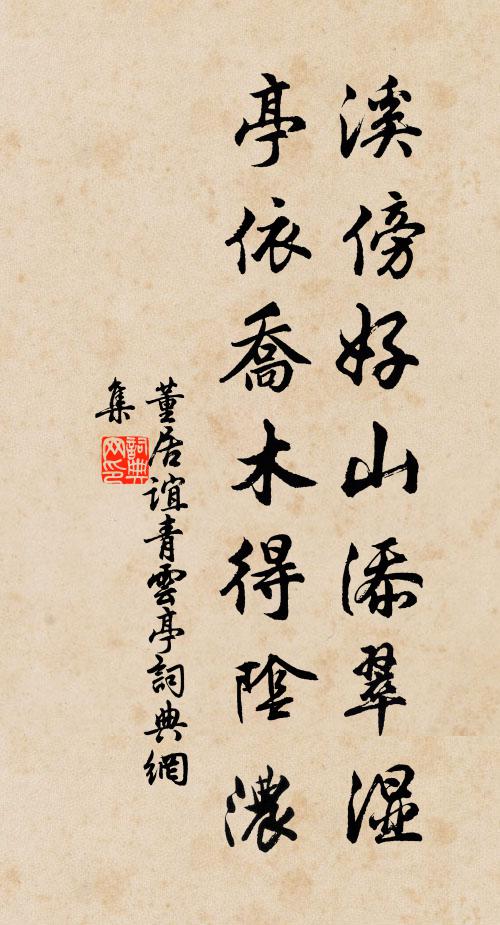 溪傍好山添翠湿
亭依喬木得陰濃
董居誼青雲亭詞典網
集
詞典网印